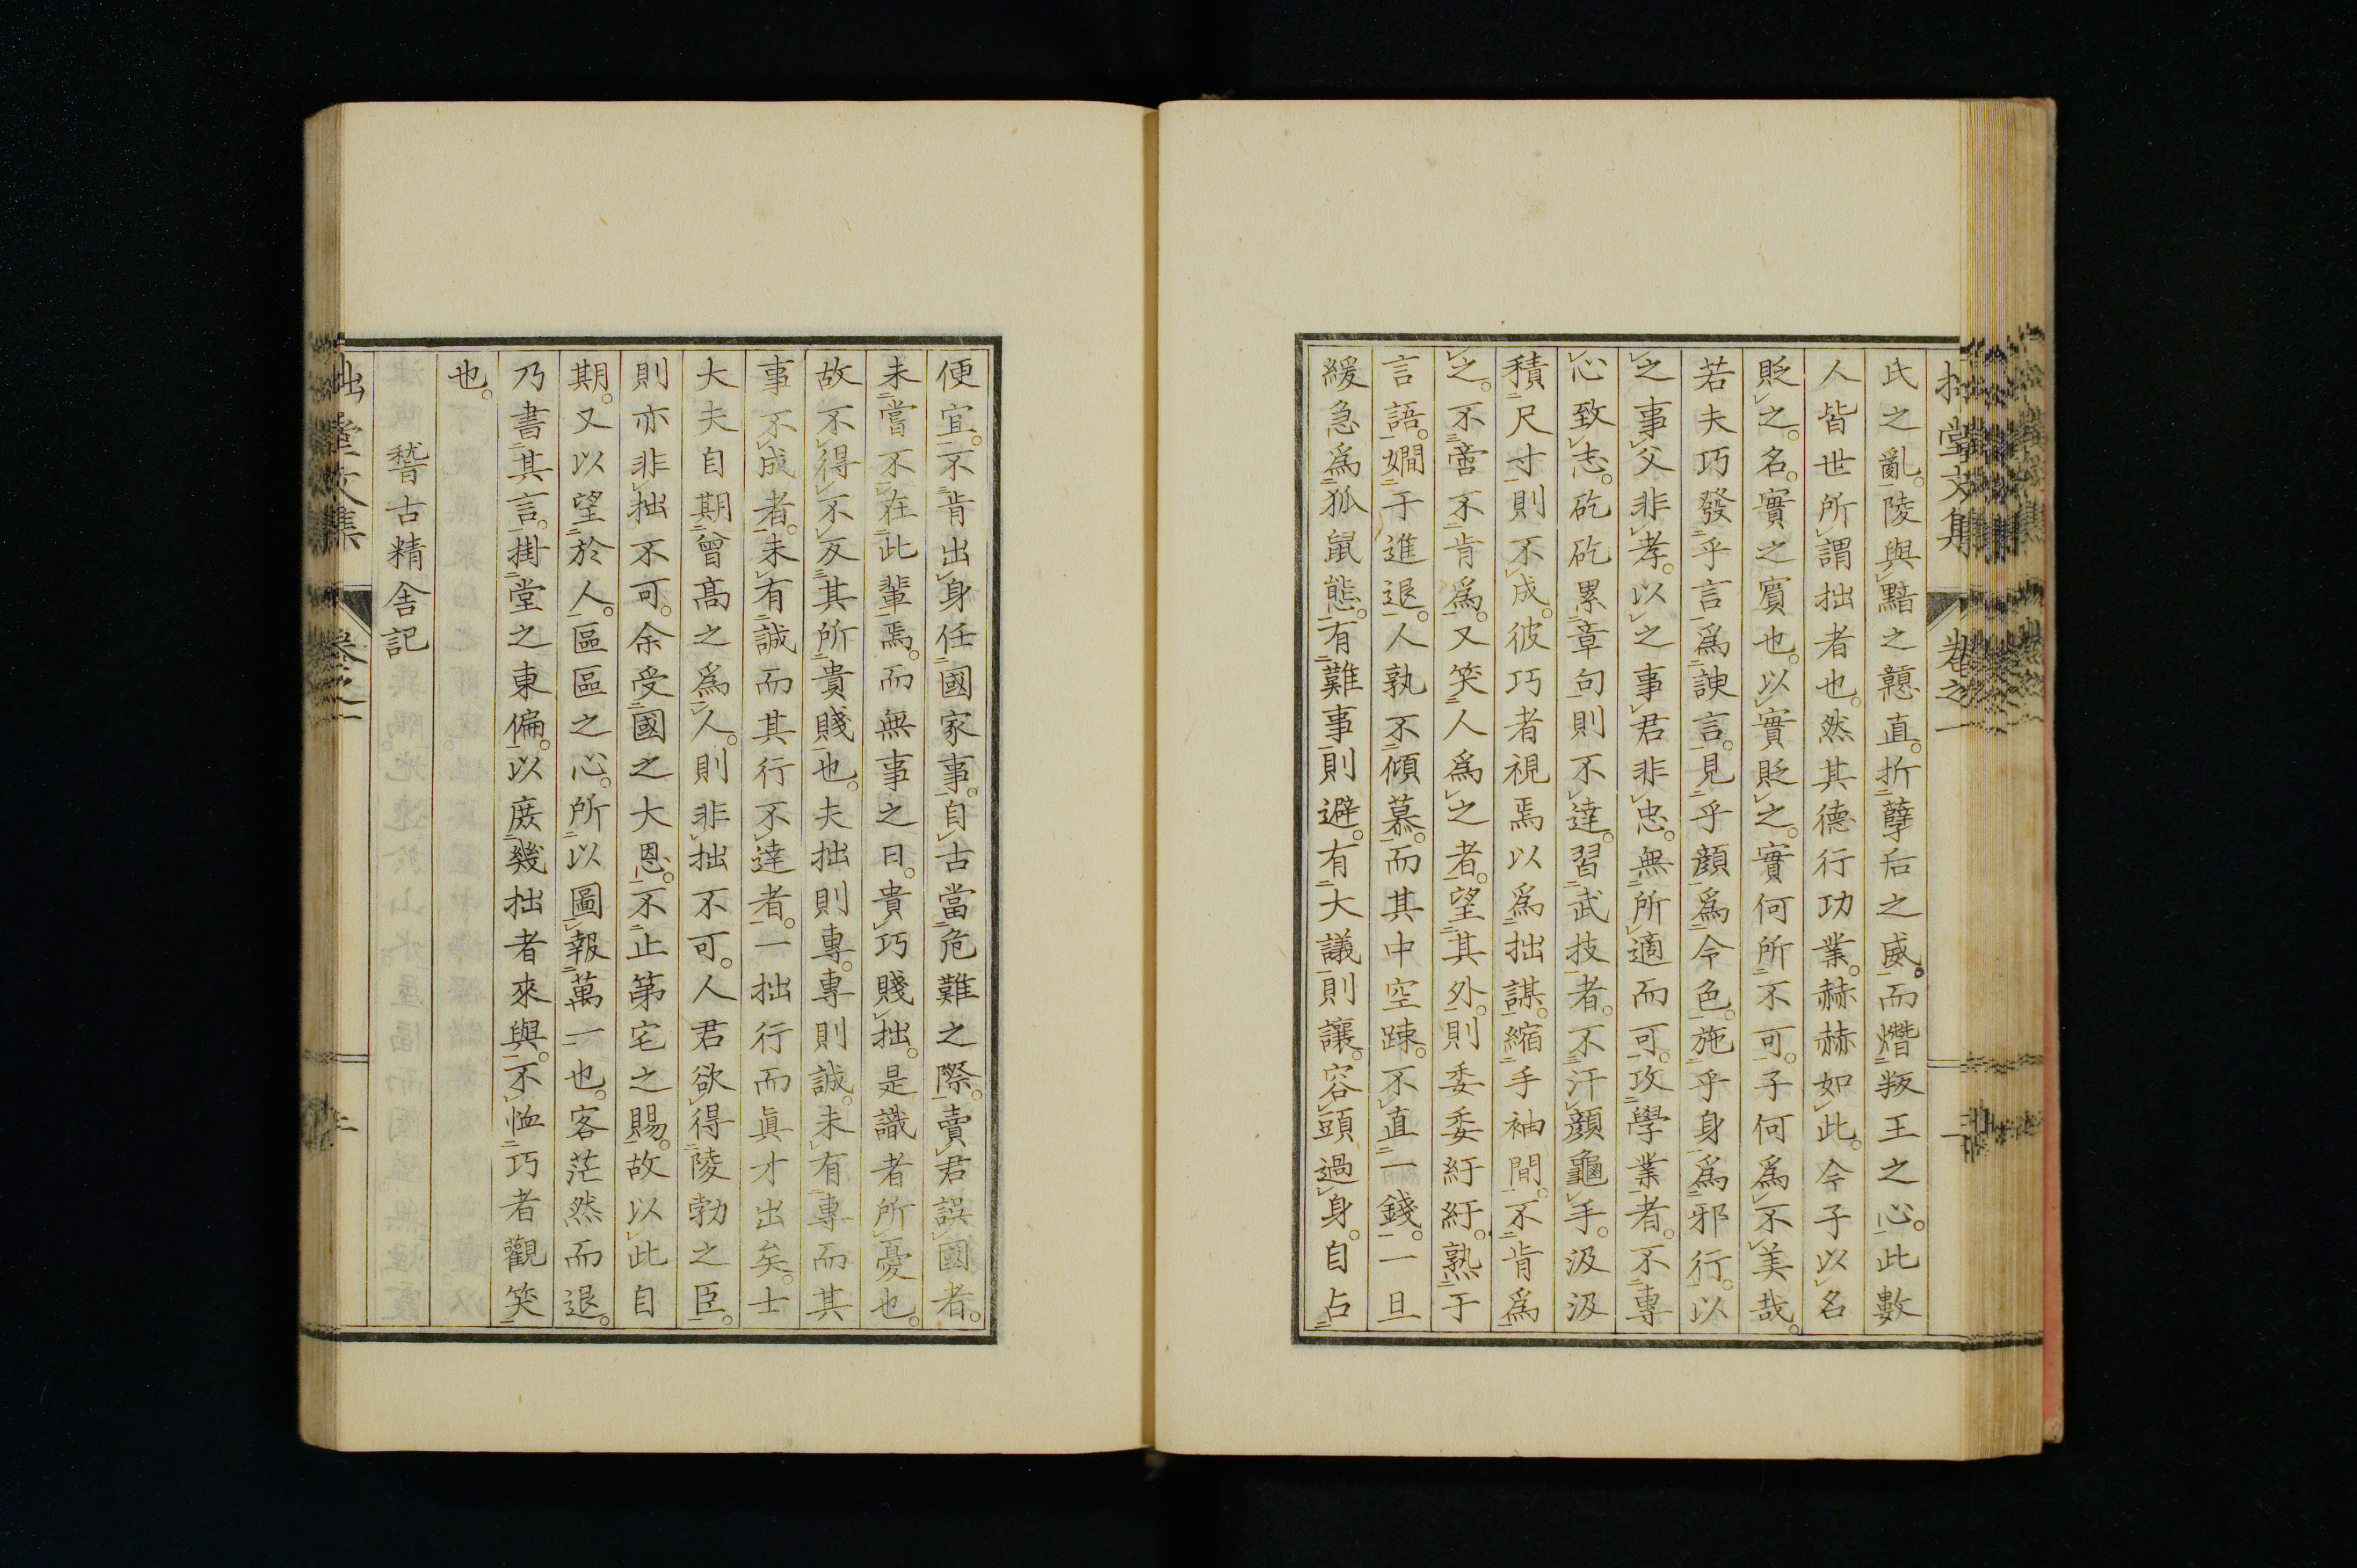 拙堂文集 卷之一
氏之亂。陵與黯之戇直。折孽后之威。而熸叛王之心。此數
人皆世所謂拙者也。然其德行功業。赫赫如此。今子以名
貶之。名。實之賓也。以實貶之。實何所不可。子何爲不美哉。
若夫巧發乎言爲諛言。見乎顏爲令色。施乎身爲邪行。以
之事父非孝。以之事君非忠。無所適而可。攻學業者。不專
心致志。矻矻累章句則不達。習武技者。不汗顏龜手。汲汲
積尺寸則不成。彼巧者視焉以爲拙謀。縮手袖間。不肯爲
之。不啻不肯爲。又笑人爲之者。望其外。則委委紆紆。熟于
言語。嫺于進退。人孰不傾慕。而其中空踈。不直一錢。一旦
緩急爲狐鼠態。有難事則避。有大議則讓。容頭過身。自占
便宜。不肯出身任國家事。自古當危難之際。賣君誤國者。
未嘗不在此輩焉。而無事之日。貴巧賤拙。是識者所憂也。
故不得不反其所貴賤也。夫拙則專。專則誠。未有專而其
事不成者。未有誠而其行不達者。一拙行而眞才出矣。士
大夫自期曾高之爲人。則非拙不可。人君欲得陵勃之臣。
則亦非拙不可。余受國之大恩。不止第宅之賜。故以此自
期。又以望於人。區區之心。所以圖報萬一也。客茫然而退。
乃書其言。掛堂之東偏。以庶幾拙者來與。不恤巧者觀笑
也。
稽古精舎記
拙堂文集 卷之一